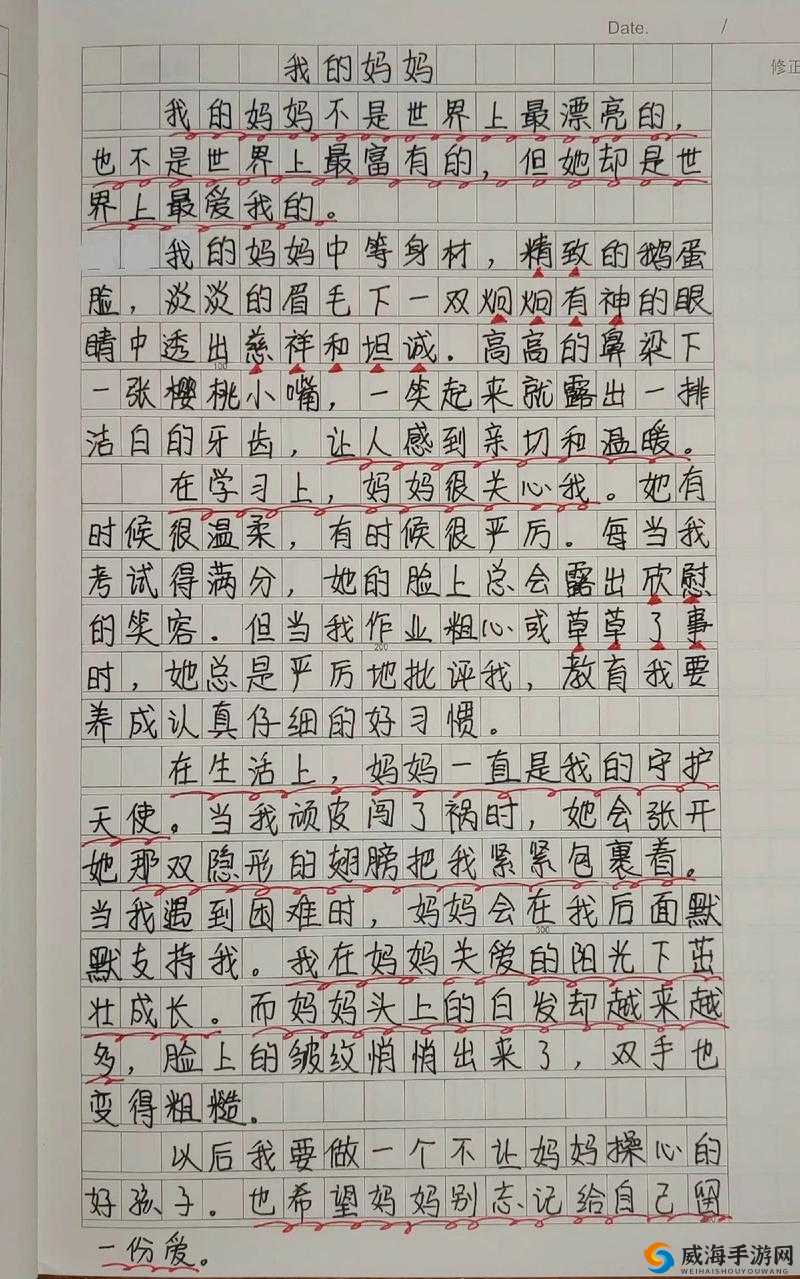 Date. /
修正
我的妈妈
我的妈妈不是世界上最漂亮的，
也不是世界上最富有的，但她却是世
界上最爱我的。
我的妈妈中等身材，精致的鹅蛋
脸，淡淡的眉毛下一双炯炯有神的眼
睛中透出慈祥和坦诚．高高的鼻梁下
100
一张樱桃小嘴，一笑起来就露出一排
洁白的牙齿，让人感到亲切和温暖。
在学习上，妈妈很关心我。她有
时候很温柔，有时候很严厉．每当我
考试得满分，她的脸上总会露出欣慰
的笑容．但当我作业粗心或草草了事
200
时，她总是严厉地批评我，教育我要
养成认真仔细的好习惯。
在生活上，妈妈一直是我的守护
天使。当我顽皮闯了祸时，她会张开
她那双隐形的翅膀把我紧紧包裹着。
当我遇到困难时，妈妈会在我后面默
300
默支持我。我在妈妈关爱的阳光下茁
壮成长。而妈妈头上的白发却越来越
多，脸上的皱纹悄悄出来了，双手也
变得粗糙。
以后我要做一个不让妈妈操心的
好孩子．也希望妈妈别忘记给自己留
一份爱。
威海手游网
WEIHAISHOUYOUWANG